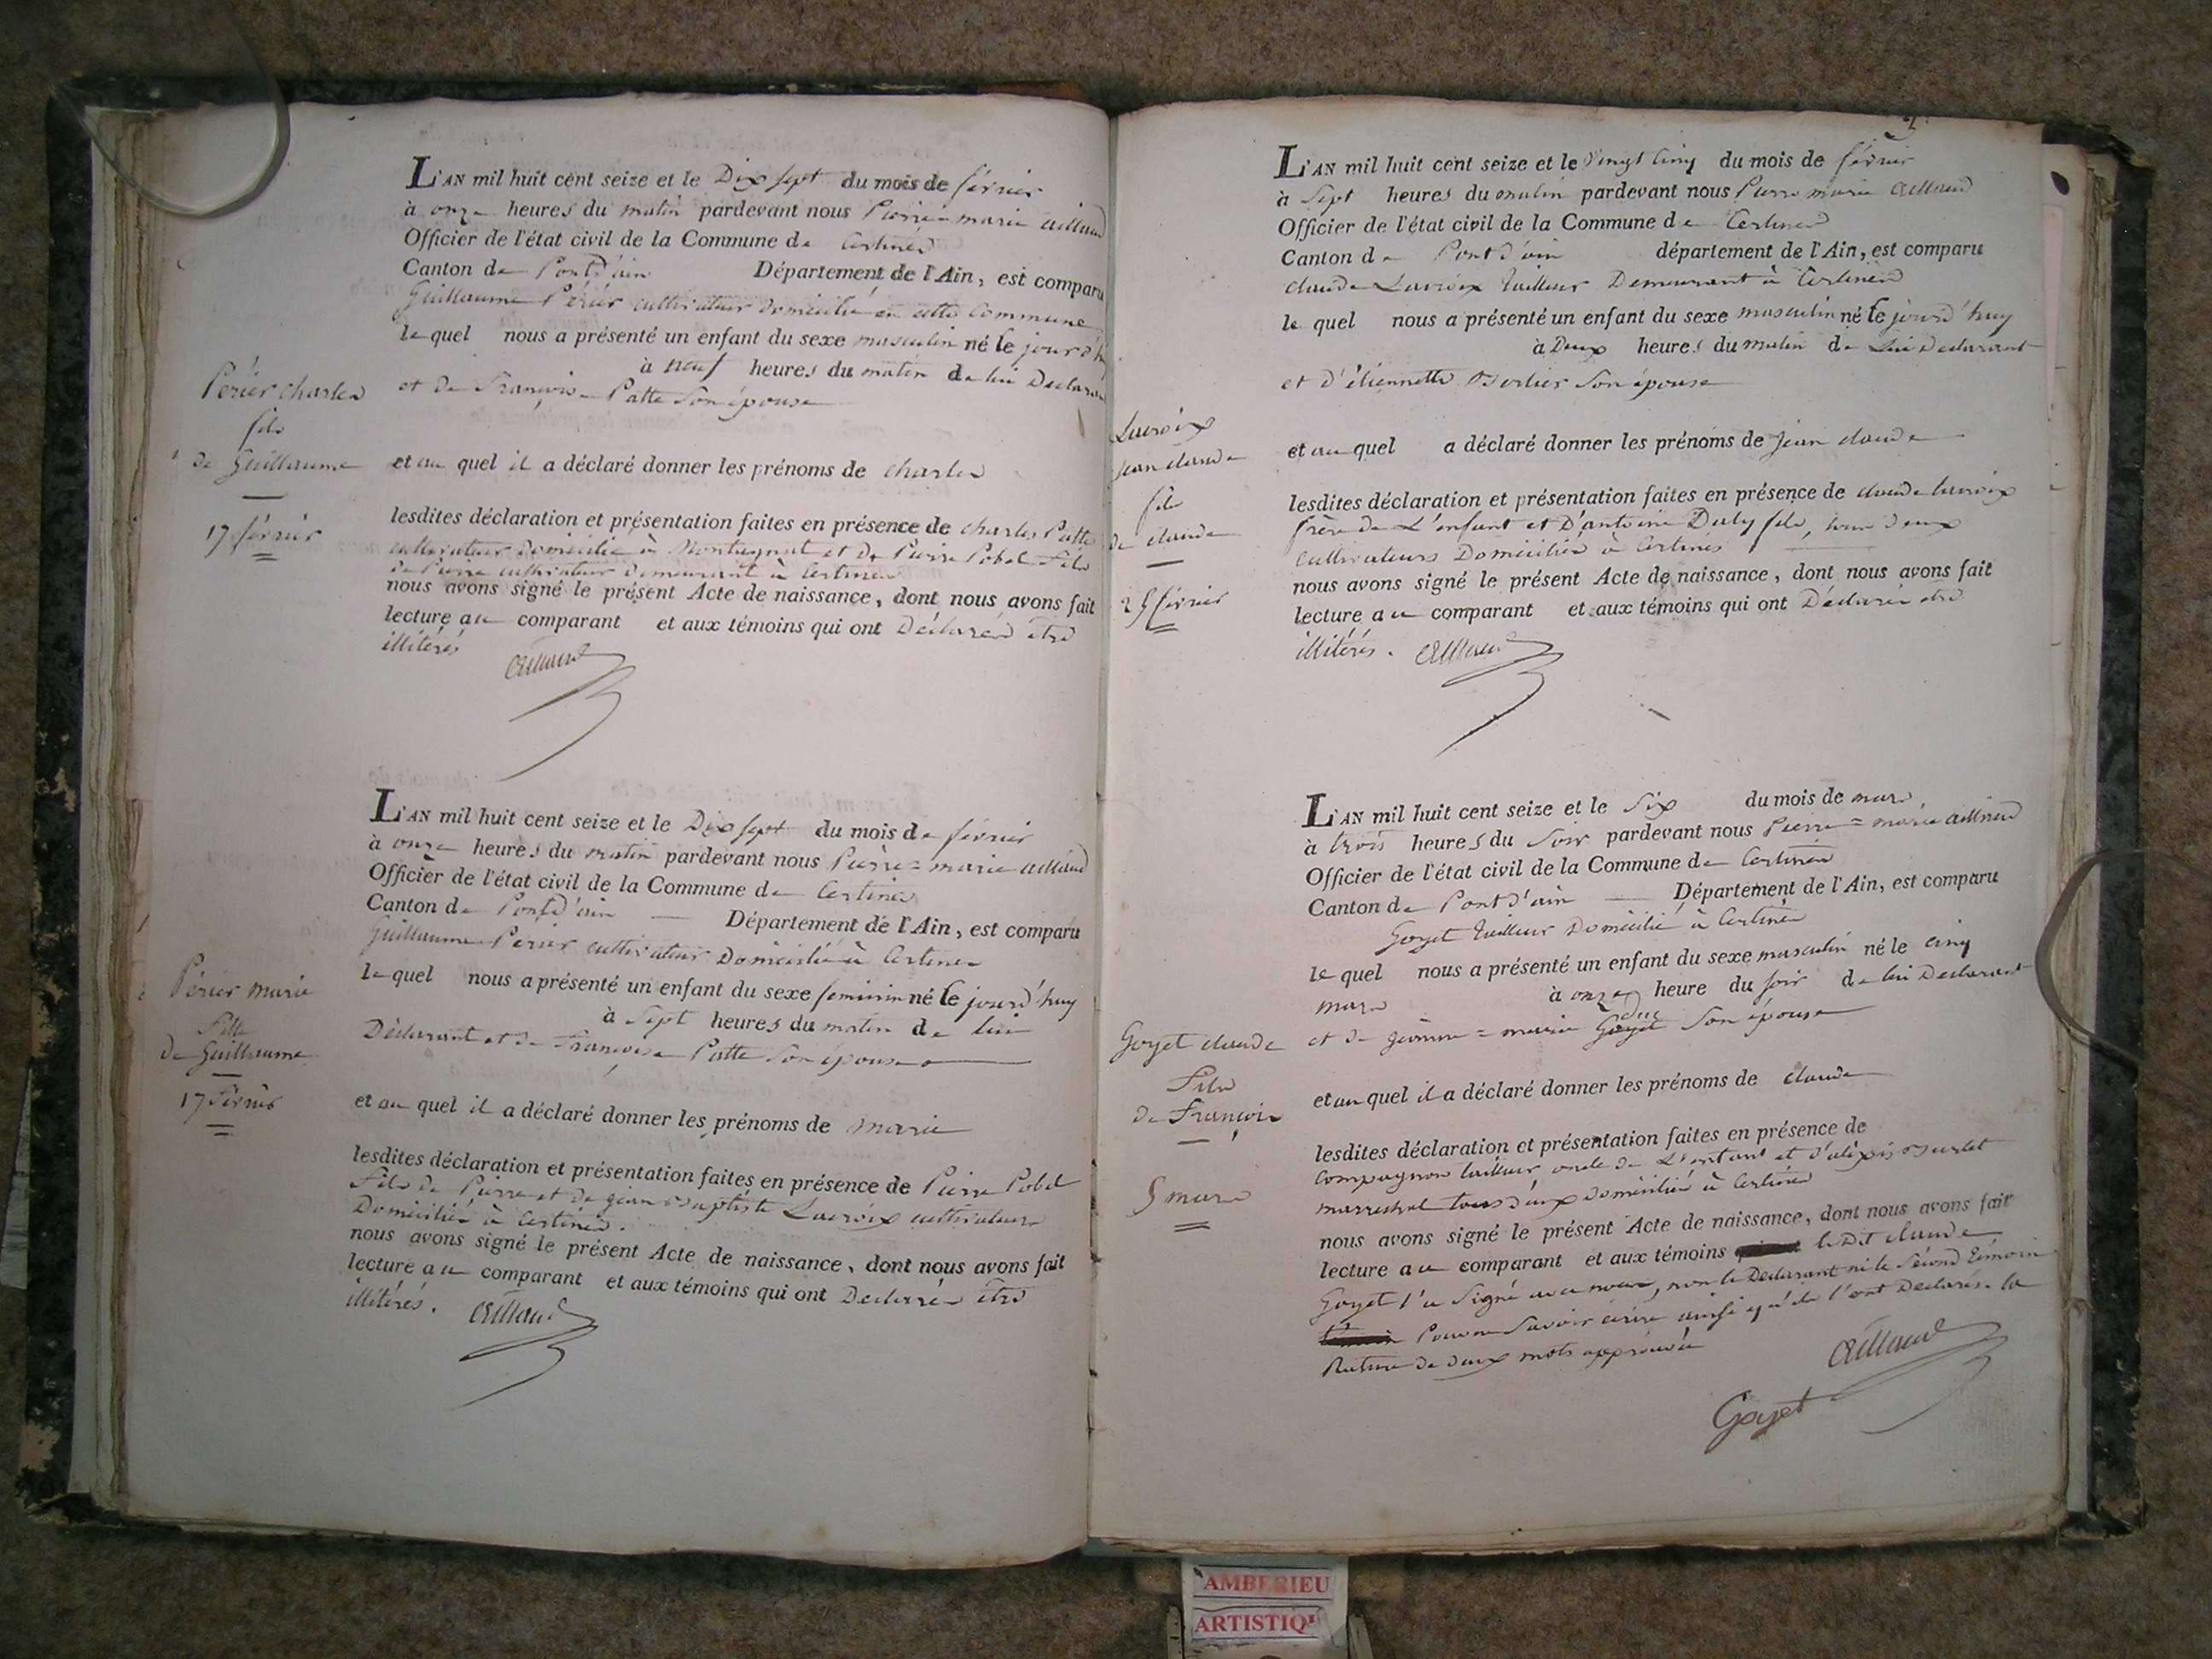 L'AN mil huit cent seize et le Dix sept du mois de février
à onze heures du matin pardevant nous Pierre=marie aillaud
Officier de l'état civil de la Commune de Certines
Canton de Pont d'ain Département de l'Ain, est comparu
Guillaume Périer cultivateur domicilié en cette Commune
le quel nous a présenté un enfant du sexe masculin né le jourd'h
à neuf heures du matin de lui Declarant
et de Françoise Patte Son épouse
Périer charles
fils
de Guillaume
17 février
et au quel il a déclaré donner les prénoms de charles
lesdites déclaration et présentation faites en présence de charles Patte
cultivateur domicilié à Montagnat et de Pierre Pobel fils
de Pierre cultivateur demeurant à Certines
nous avons signé le présent Acte de naissance, dont nous avons fait
lecture au comparant et aux témoins qui ont Déclarés être
illitérés
aillaud
L'AN mil huit cent seize et le Dix sept du mois de février
à onze heures du matin pardevant nous Pierre=marie aillaud
Officier de l'état civil de la Commune de Certines
Canton de Pont d'ain Département de l'Ain, est comparu
Guillaume Périer cultivateur Domicilié à Certines
le quel nous a présenté un enfant du sexe feminin né le jourd'huy
à Sept heures du matin de lui
Déclarant et de Françoise Patte Son épouse
Périer marie
fille
de Guillaume
17 février
et au quel il a déclaré donner les prénoms de marie
lesdites déclaration et présentation faites en présence de Pierre Pobel
fils de Pierre et de jean Baptiste Lacroix cultivateurs
Domiciliés à Certines.
nous avons signé le présent Acte de naissance, dont nous avons fait
lecture au comparant et aux témoins qui ont Declarés être
illitérés.
aillaud
3
L'AN mil huit cent seize et le Vingt Cinq du mois de février
à Sept heures du matin pardevant nous Pierre marie aillaud
Officier de l'état civil de la Commune de Certines
Canton de Pont d'ain département de l'Ain, est comparu
claude Lacroix tailleur Demeurant à Certines
le quel nous a présenté un enfant du sexe masculin né le jourd'huy
à Deux heures du matin de Lui Declarant
et D'étiennette Son épouse
Lacroix
jean claude
fils
de claude
25 février
et au quel a déclaré donner les prénoms de jean claude
lesdites déclaration et présentation faites en présence de claude lacroix
frère de L'enfant et D'antoine Duly fils, tous deux
cultivateurs Domiciliés à Certines
nous avons signé le présent Acte de naissance, dont nous avons fait
lecture au comparant et aux témoins qui ont Déclarés être
illitérés.
aillaud
L'AN mil huit cent seize et le Six du mois de mars
à trois heures du Soir pardevant nous Pierre=marie aillaud
Officier de l'état civil de la Commune de Certines
Canton de Pont d'ain Département de l'Ain, est comparu
Goyet tailleur Domicilié à Certines
le quel nous a présenté un enfant du sexe masculin né le cinq
mars à onze heure du soir de lui Declarant
et de = marie Son épouse
Goyet claude
Fils
de François
5 mars
et au quel il a déclaré donner les prénoms de Claude
lesdites déclaration et présentation faites en présence de
Compagnon tailleur oncle de L'enfant et d'aléxis
marrechal tous deux domiciliés à Certines
nous avons signé le présent Acte de naissance, dont nous avons fait
lecture au comparant et aux témoins le Dit claude
Goyet l'a Signé avec nous, non le Declarant ni le Sécond témoin
Pour ne Savoir écrire ainsi qu'ils l'ont Declarés. la
Rature de deux mots approuvée
aillaud
Goyet
AMBERIEU
ARTISTIQ